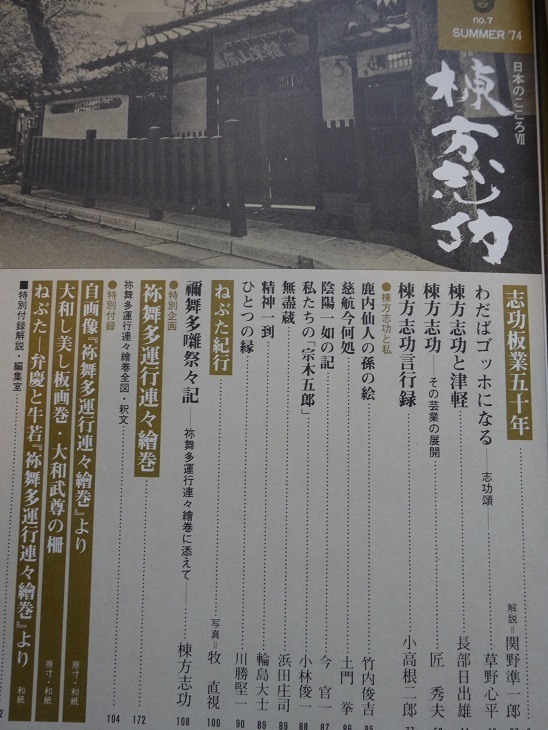 no.7
SUMMER '74
日本のこころⅦ
棟方志功
志功板業五十年 解説＝関野準一郎
わだばゴッホになる——志功頌—— 草野心平
棟方志功と津軽 長部日出雄
棟方志功 その芸業の展開 匠 秀夫
棟方志功言行録 小高根二郎 77
●棟方志功と私
鹿内仙人の孫の絵 竹内俊吉 85
慈航今何処 土門 拳
陰陽一如の記 今 官一 87
私たちの「宗木五郎」 小林俊一 88
無盡蔵 浜田庄司 89
精神一到 輪島大士 89
ひとつの縁 川勝堅一 90
ねぶた紀行 写真＝牧 直視 100
禰舞多囃祭々記——祢舞多運行連々繪巻に添えて—— 棟方志功 108
●特別企画
祢舞多運行連々繪巻 172
祢舞多運行連々繪巻全図・釈文 104
●特別付録
自画像『祢舞多運行連々繪巻』より 原寸・和紙
大和し美し板画巻・大和武尊の柵 原寸・和紙
ねぶた—弁慶と牛若『祢舞多運行連々繪巻』より 和紙
■特別付録解説・編集室